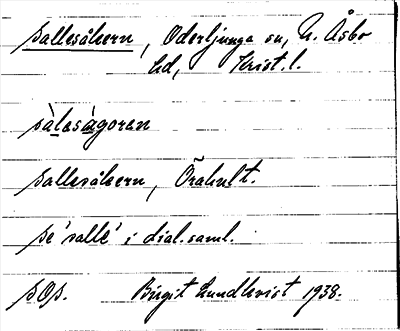 sallesåkern, Oderljunga sn, N. Åsbo
hd, Krist. l.
sàlasàgoran
sallesåkern, Örahult.
se 'salle' i dial.saml.
sOp. Birgit Lundkvist 1938.